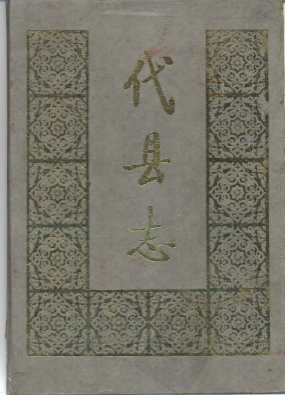 代县志